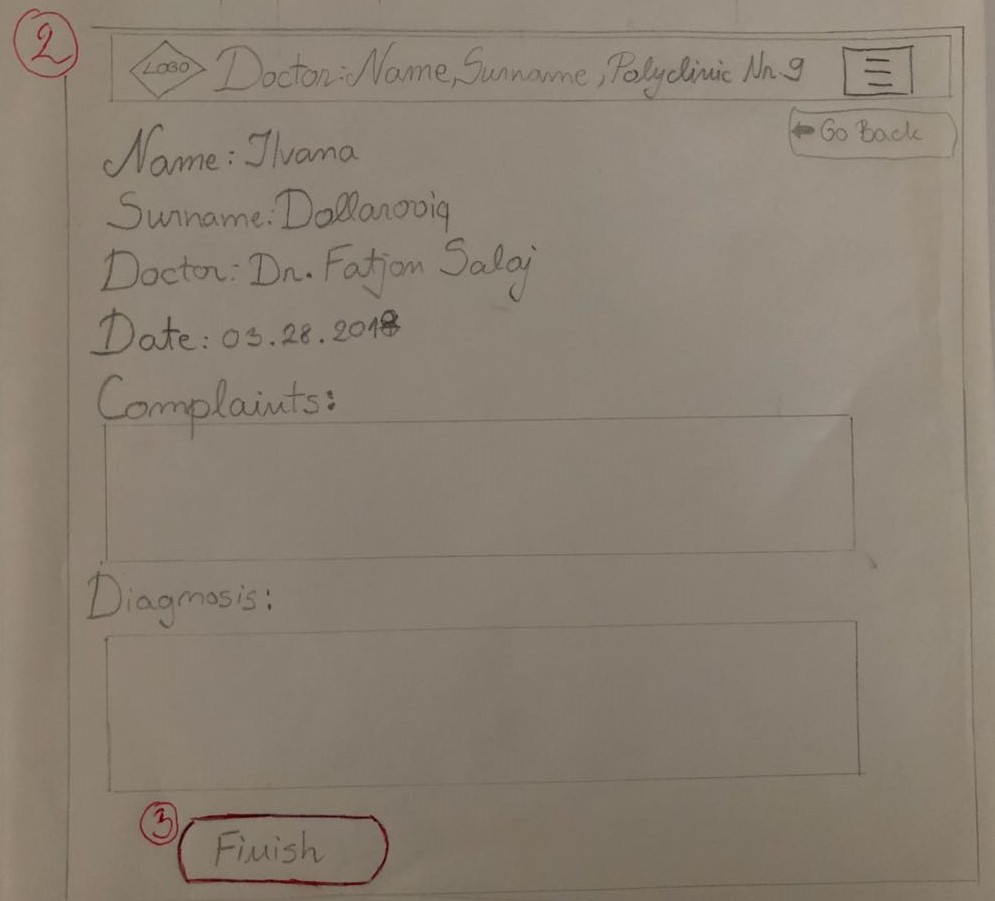 2
LOGO Doctor: Name, Surname, Polyclinic Nr. 9
Go Back
Name: Ilvana
Surname: Dollaroviq
Doctor: Dr. Fatjon Salaj
Date: 03.28.2018
Complaints:
Diagnosis:
3
Finish